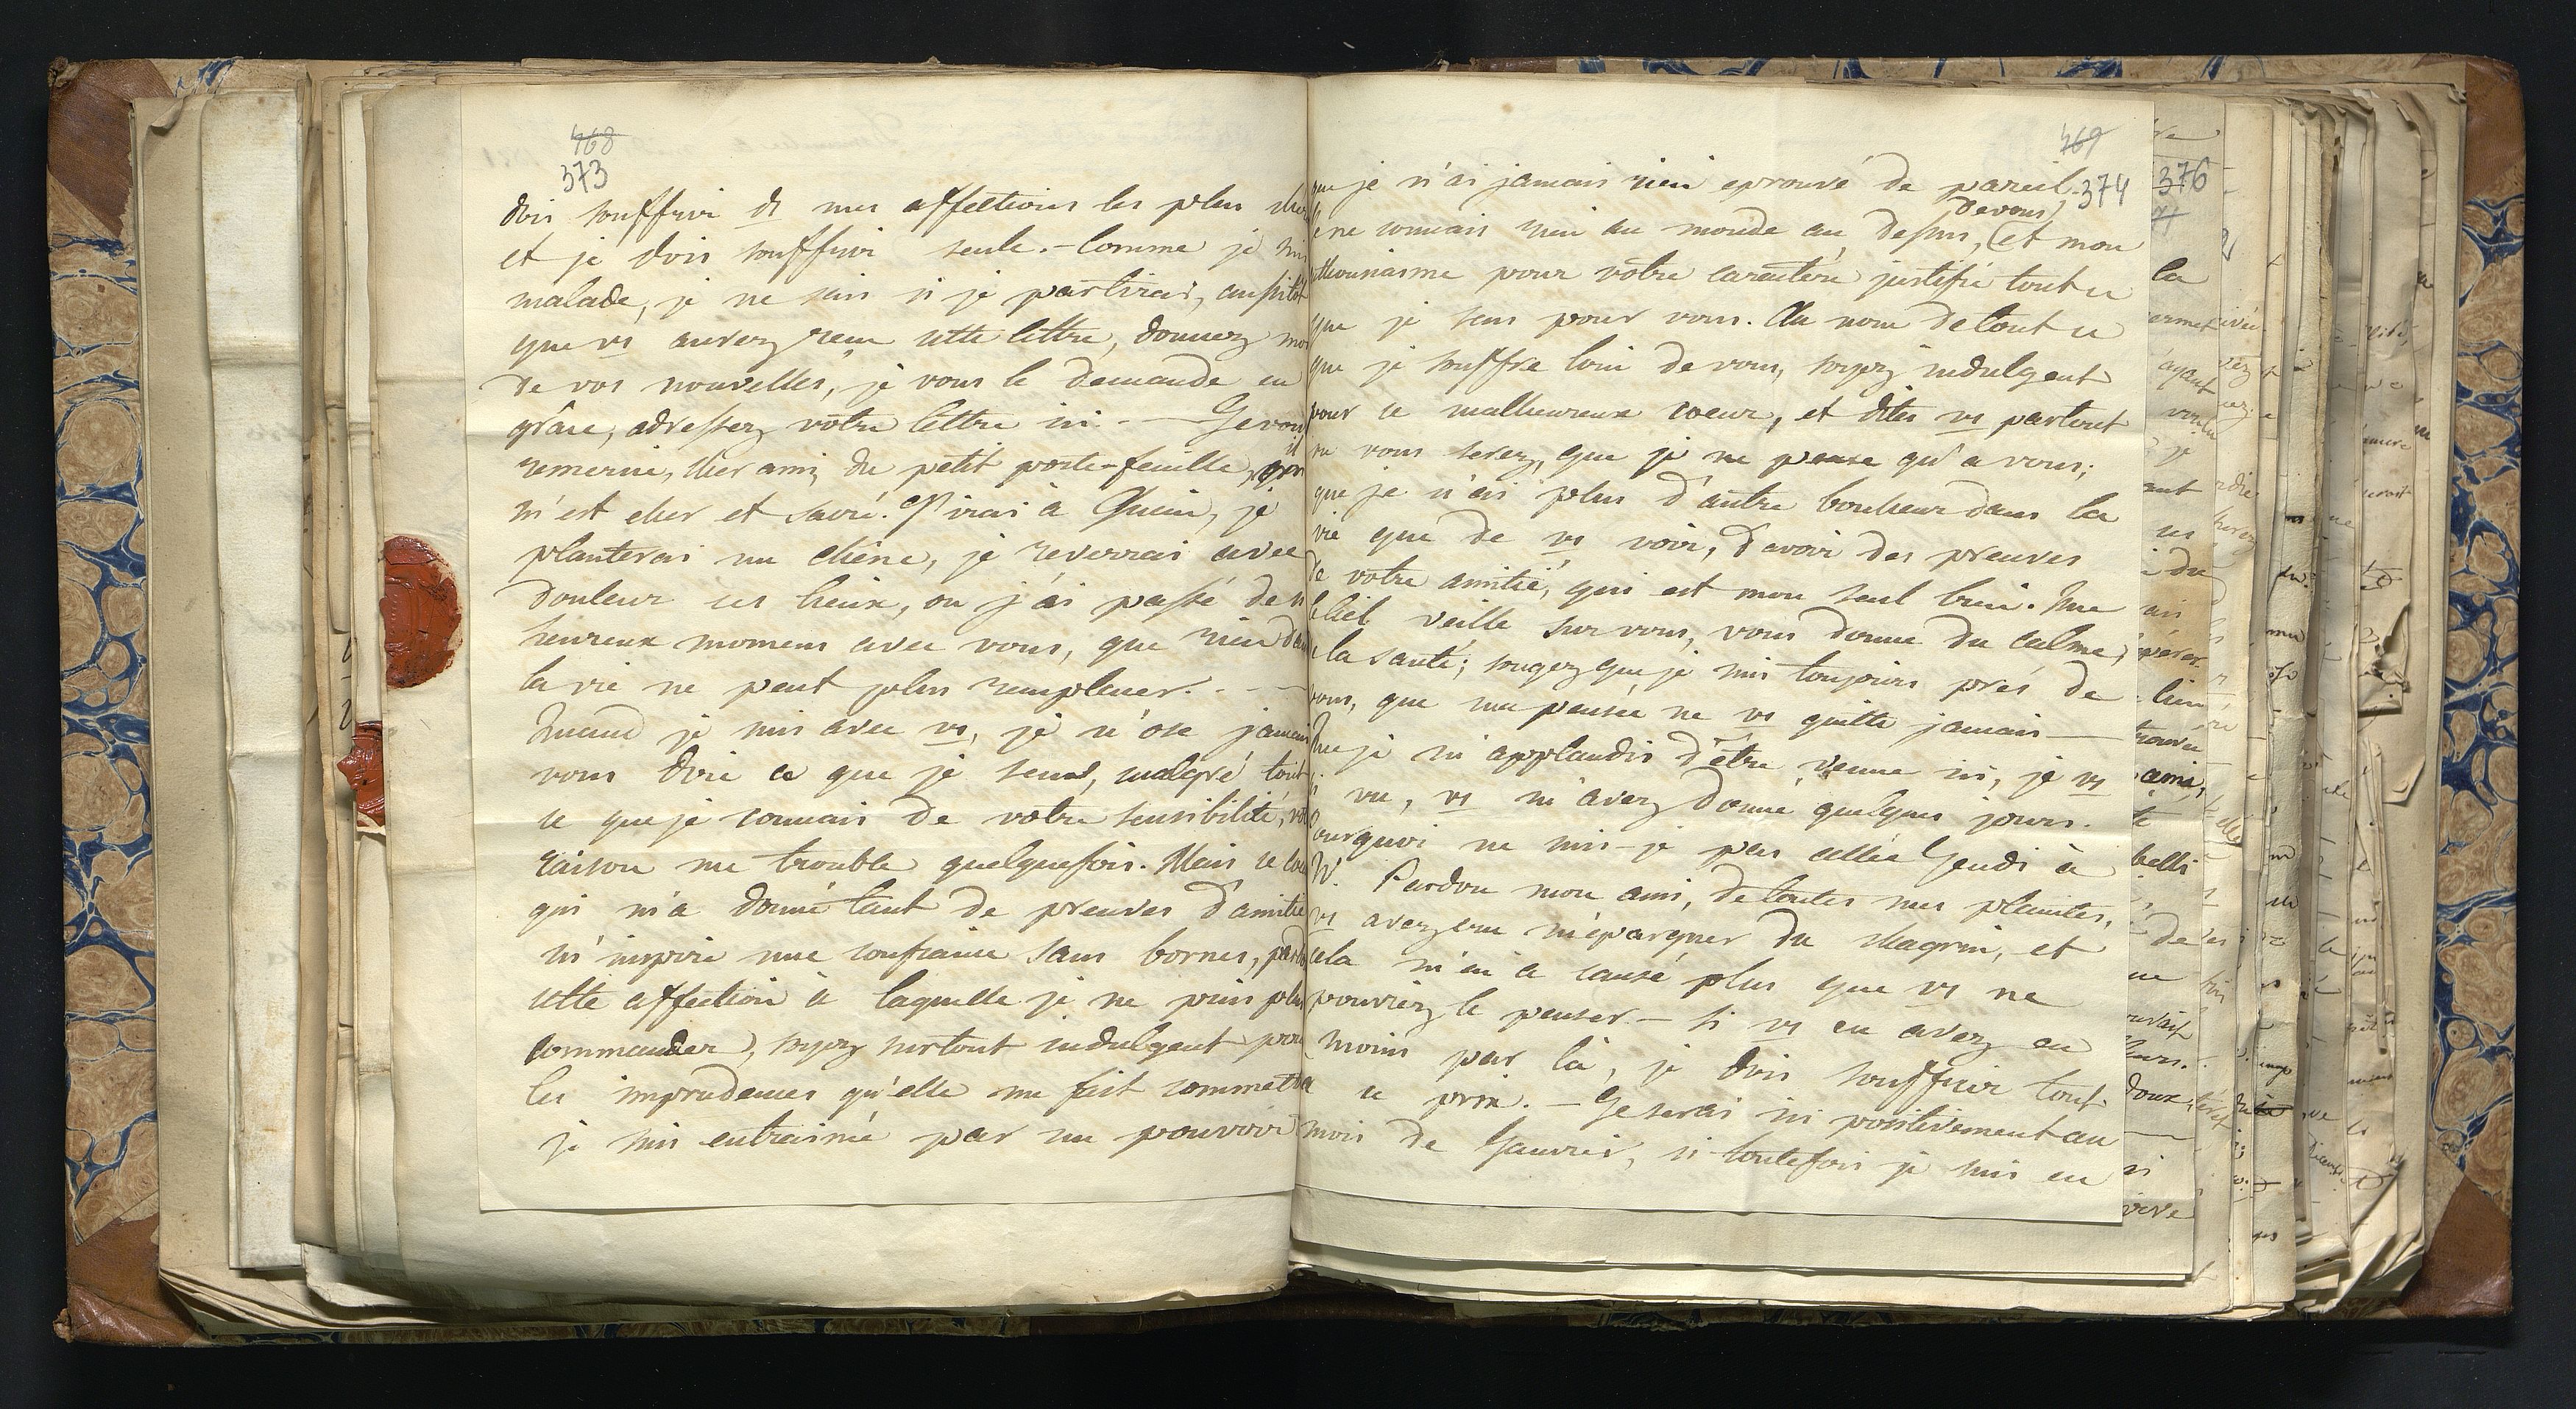 468
373
dois souffrir ds mes affections les plus cher
et je dois souffrir seule. - Comme je suis
malade, je ne sais si je partirai, aussitôt
que vs aurez reçu cette lettre, donnez moi
de vos nouvelles, je vous le demande en
grâce, adressez votre lettre ici. - Je vous
remercie, cher ami, du petit porte-feuille, il
m'est cher et sacré. J'irai à , je
planterai un chêne, je reverrai avec
douleur ces lieux, ou j'ai passé de si
heureux momens avec vous, que rien dans
la vie ne peut plus remplacer. . —
Quand je suis avec vs, je n'ose jamais
vous dire ce que je sens, malgré tout
ce que je connais de votre sensibilité, votre
raison me trouble quelquefois. Mais ce coeur
qui m'a donné tant de preuves d'amitié
m'inspire une confiance sans bornes, pardon
cette affection à laquelle je ne puis plus
commander, soyez surtout indulgent pour
les imprudences qu'elle me fait commettre
je suis entrainée par un pouvoir
469
374
que je n'ai jamais rien eprouvé de pareil.
de vous
je ne connais rien au monde au dessus, et mon
enthousiasme pour votre caractère justifie tout ce
que je sens pour vous. Au nom de tout ce
que je souffre loin de vous, soyez indulgent
pour ce malheureux coeur, et dites vs partout
ou vous serez, que je ne pense qu'a vous;
que je n'ai plus d'autre bonheur dans la
vie que de vs voir, d'avoir des preuves
de votre amitié, qui est mon seul bien. Que le
Ciel veille sur vous, vous donne du calme,
de la santé; songez que je suis toujours près de
vous, que ma pensée ne vs quitte jamais —
Que je m'applaudis d'être venue ici, je vs
ai vu, vs m'avez donné quelques jours.
Pourquoi ne suis-je pas allée Jeudi à
W. Pardon mon ami, de toutes mes plaintes,
vs avez cru m'épargner du chagrin, et
cela m'en a causé plus que vs ne
pouviez le penser. - Si vs en avez eu
moins par là, je dois souffrir tout
à ce prix. - Je serai ici positivement au
mois de Janvier, si toutefois je suis en
376
la